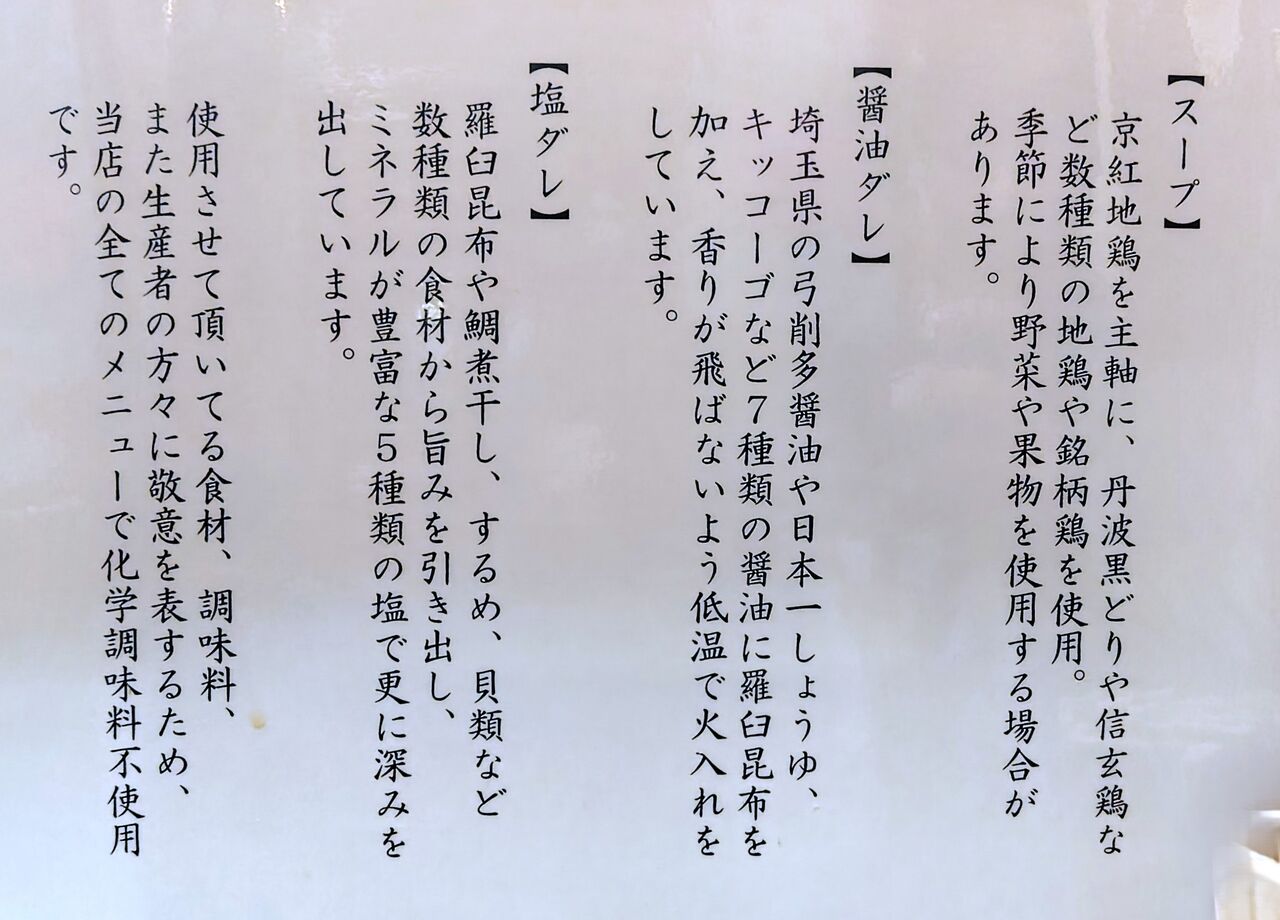 【スープ】
京紅地鶏を主軸に、丹波黒どりや信玄鶏な
ど数種類の地鶏や銘柄鶏を使用。
季節により野菜や果物を使用する場合が
あります。
【醤油ダレ】
埼玉県の弓削多醤油や日本一しょうゆ、
キッコーゴなど7種類の醤油に羅臼昆布を
加え、香りが飛ばないよう低温で火入れを
しています。
【塩ダレ】
羅臼昆布や鯛煮干し、するめ、貝類など
数種類の食材から旨みを引き出し、
ミネラルが豊富な5種類の塩で更に深みを
出しています。
使用させて頂いてる食材、調味料、
また生産者の方々に敬意を表するため、
当店の全てのメニューで化学調味料不使用
です。